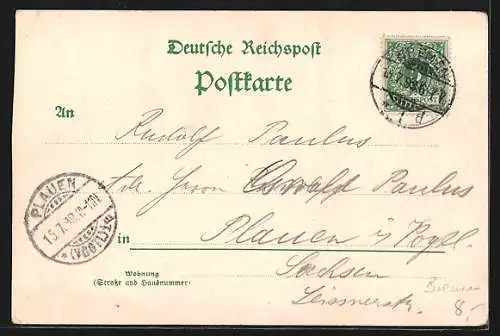 Deutsche Reichspost
Postkarte
An
Rudolf Paulus
Herrn Oswald Paulus
in Plauen i/ Vogtl.
Sachsen
Wohnung
(Straße und Hausnummer)
Bremen
8,-
PLAUEN
15.7.
* (VOGTL) *